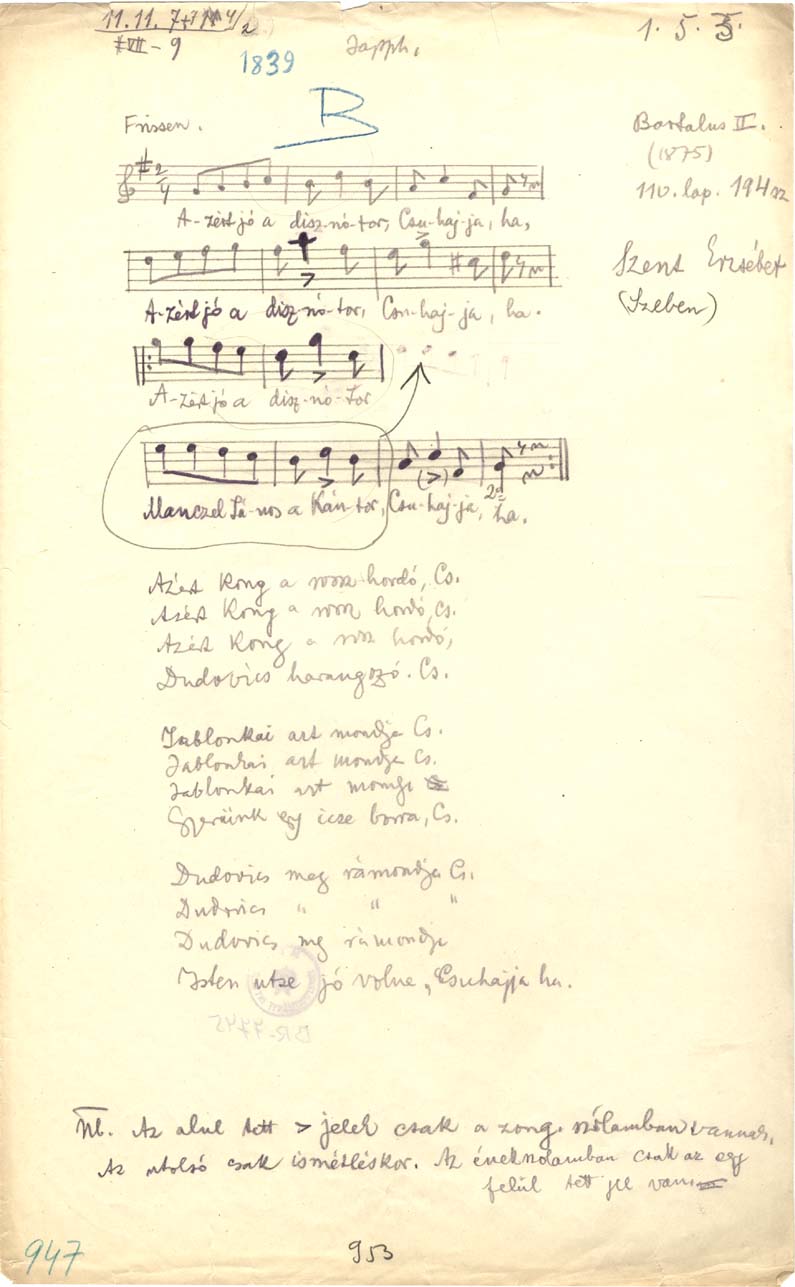 11. 11. 7+7
VII - 9
1. 5. 5.
1839
B
Frissen.
Bartalus II.
(1875)
110. lap. 194 sz
Szent Erzsébet
(Szeben)
2/4
A-zért jó a disz-nó-tor, Csu-haj-ja, ha,
A-zért jó a disz-nó-tor, Csu-haj-ja, ha.
A-zért jó a disz-nó-tor
Manczel Já-nos a Kán-tor, Csu-haj-ja, ha.
Azért kong a rossz hordó, Cs.
Azért kong a rossz hordó, cs.
Azért kong a rossz hordó,
Dudovics harangozó. Cs.
Jablonkai azt mondja Cs.
Jablonkai azt mondja Cs.
Jablonkai azt mondja
Igyunk egy icze borra, Cs.
Dudovics meg rámondja Cs.
Dudovics " " "
Dudovics meg rámondja
Isten utse jó volna, Csuhajja ha.
DR-7745
NB. Az alul tett > jelek csak a zong. szólamban vannak,
Az utolsó csak ismétléskor. Az énekszólamban csak az egy
felül tett jel van
947
953